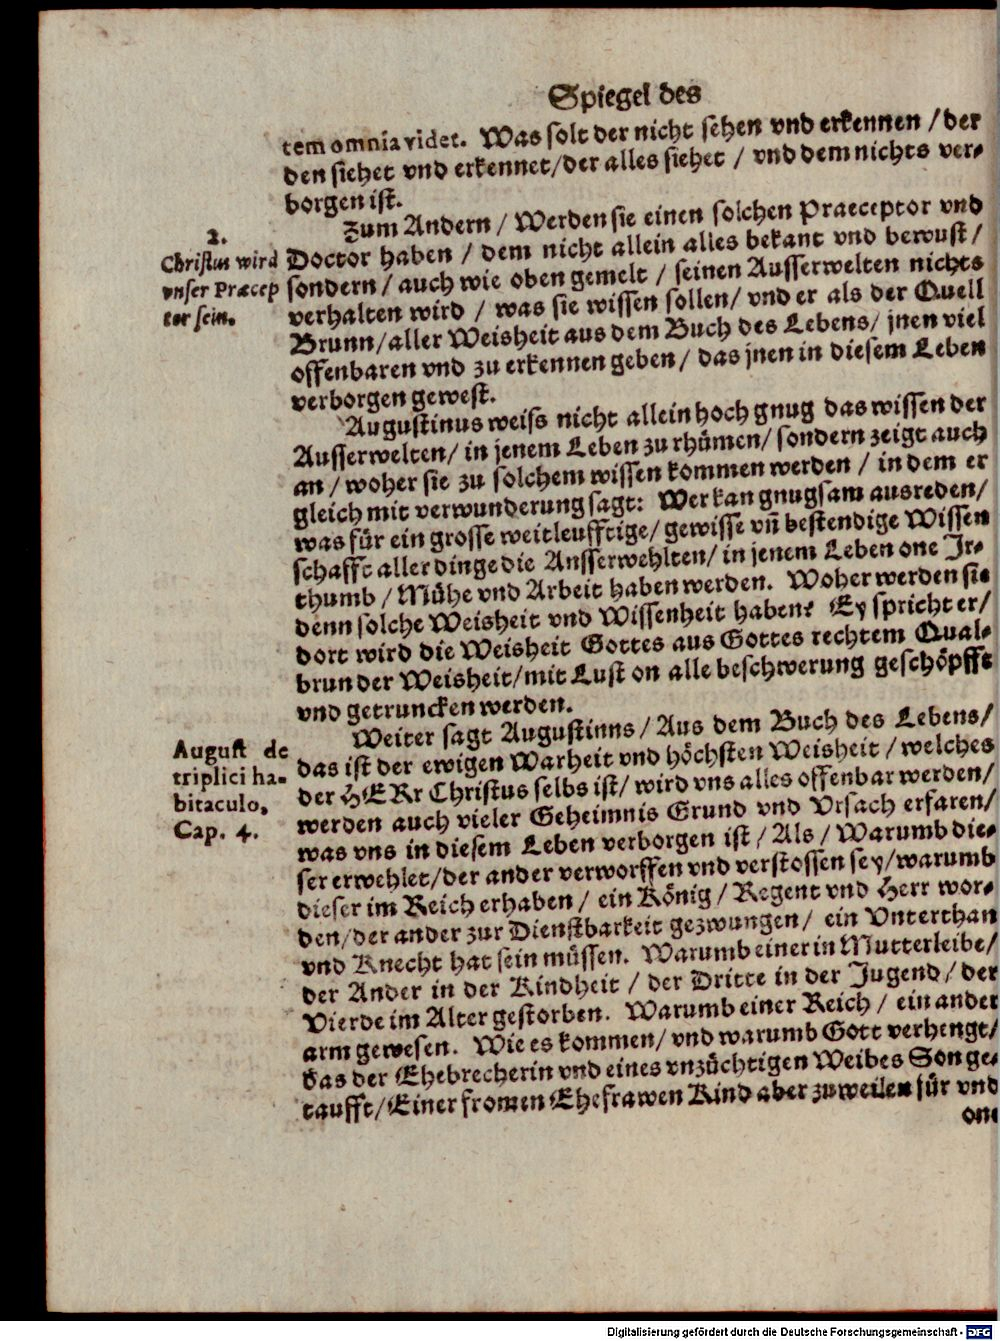 Spiegel des
tem omnia videt. Was solt der nicht sehen vnd erkennen / der
den siehet vnd erkennet/der alles siehet / vnd dem nichts ver-
borgen ist.
Zum Andern / Werden sie einen solchen Praeceptor vnd
Doctor haben / dem nicht allein alles bekant vnd bewust /
sondern / auch wie oben gemelt / seinen Ausserwelten nichts
verhalten wird / was sie wissen sollen/ vnd er als der Quell
Brunn/aller Weisheit aus dem Buch des Lebens/ jnen viel
offenbaren vnd zu erkennen geben / das jnen in diesem Leben
verborgen gewest.
2.
Christus wird
vnser Præcep
tor sein.
Augustinus weiss nicht allein hoch gnug das wissen der
Ausserwelten/ in jenem Leben zu rhümen/ sondern zeigt auch
an / woher sie zu solchem wissen kommen werden / in dem er
gleich mit verwunderung sagt: Wer kan gnugsam ausreden/
was für ein grosse weitleufftige/ gewisse vñ bestendige Wissen
schafft aller dinge die Ansserwehlten/ in jenem Leben one Jr-
thumb / Mühe vnd Arbeit haben werden. Woher werden sie
denn solche Weisheit vnd Wissenheit haben? Ey spricht er/
dort wird die Weisheit Gottes aus Gottes rechtem Qual-
brun der Weisheit/mit Lust on alle beschwerung geschöpfft
vnd getruncken werden.
Weiter sagt Augustinns / Aus dem Buch des Lebens/
das ist der ewigen Warheit vnd höchsten Weisheit / welches
der HERr Christus selbs ist/ wird vns alles offenbar werden/
werden auch vieler Geheimnis Grund vnd Vrsach erfaren/
was vns in diesem Leben verborgen ist / Als / Warumb die-
ser erwehlet/der ander verworffen vnd verstossen sey/warumb
dieser im Reich erhaben / ein König / Regent vnd Herr wor-
den/der ander zur Dienstbarkeit gezwungen / ein Vnterthan
vnd Knecht hat sein müssen. Warumb einer in Mutterleibe/
der Ander in der Kindheit / der Dritte in der Jugend / der
Vierde im Alter gestorben. Warumb einer Reich / ein ander
arm gewesen. Wie es kommen/ vnd warumb Gott verhengt/
das der Ehebrecherin vnd eines vnzüchtigen Weibes Son ge-
taufft/ Einer fromen Ehefrawen Kind aber zuweilen für vnd
August de
triplici ha-
bitaculo,
Cap. 4.
one
Digitalisierung gefördert durch die Deutsche Forschungsgemeinschaft - DFG